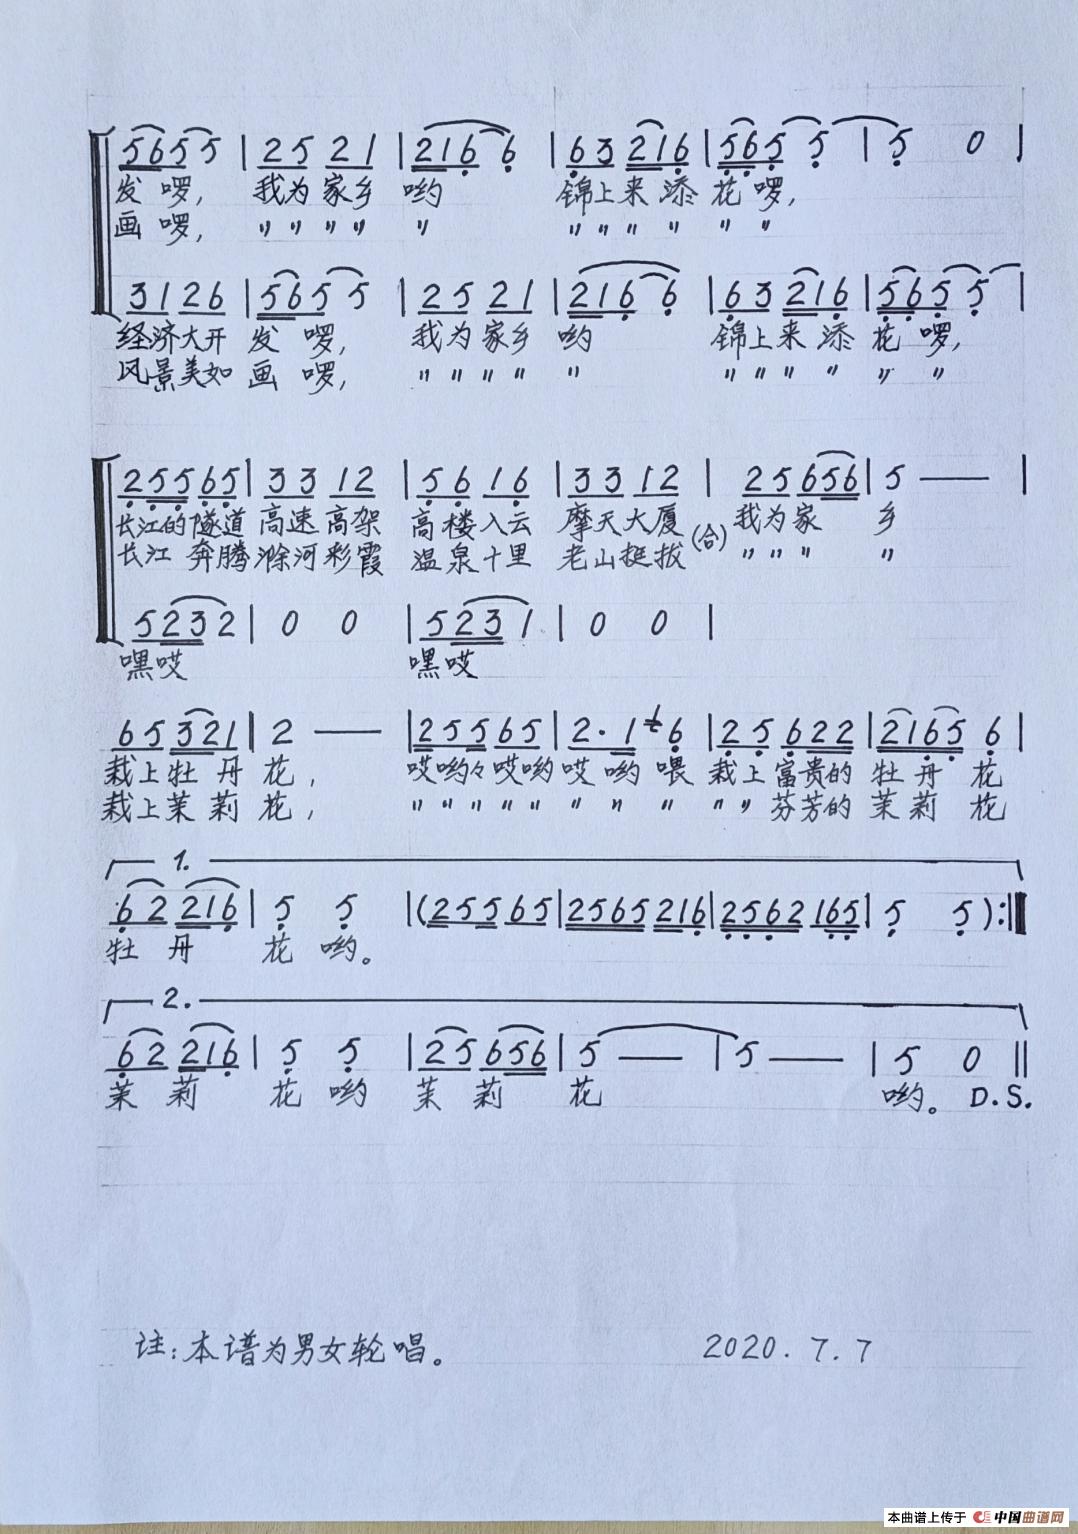 5655 | 25 21 | 216 6 | 63 216 | 565 5 | 5 0 |
发 啰, 我为家乡 哟 锦上来添 花 啰,
画 啰, 〃 〃 〃 〃 〃 〃 〃 〃 〃 〃 〃
3126 | 5655 | 25 21 | 216 6 | 63 216 | 565 5 |
经济大开 发 啰, 我为家乡 哟 锦上来添 花 啰,
风景美如 画 啰, 〃 〃 〃 〃 〃 〃 〃 〃 〃 〃 〃
25565 | 33 12 | 56 16 | 33 12 | 25656 | 5 — |
长江的隧道 高速高架 高楼入云 摩天大厦 (合) 我为家 乡
长江 奔腾 滁河彩霞 温泉十里 老山挺拔 〃 〃 〃 〃
5232 | 0 0 | 5231 | 0 0 |
嘿哎 嘿哎
65321 | 2 — | 25565 | 2·1 6 | 25622 | 2165 6 |
栽上牡丹 花, 哎哟々哎哟 哎 哟 喂 栽上富贵的 牡丹 花
栽上茉莉 花, 〃 〃 〃 〃 〃 〃 〃 〃 〃 〃 芬芳的 茉莉 花
1.
62 216 | 5 5 | (25565 | 2565216 | 2562165 | 5 5 ) :|
牡 丹 花 哟。
2.
62 216 | 5 5 | 25656 | 5 — | 5 — | 5 0 ‖
茉 莉 花 哟 茉 莉 花 哟。 D.S.
注:本谱为男女轮唱。 2020.7.7
本曲谱上传于 中国曲谱网